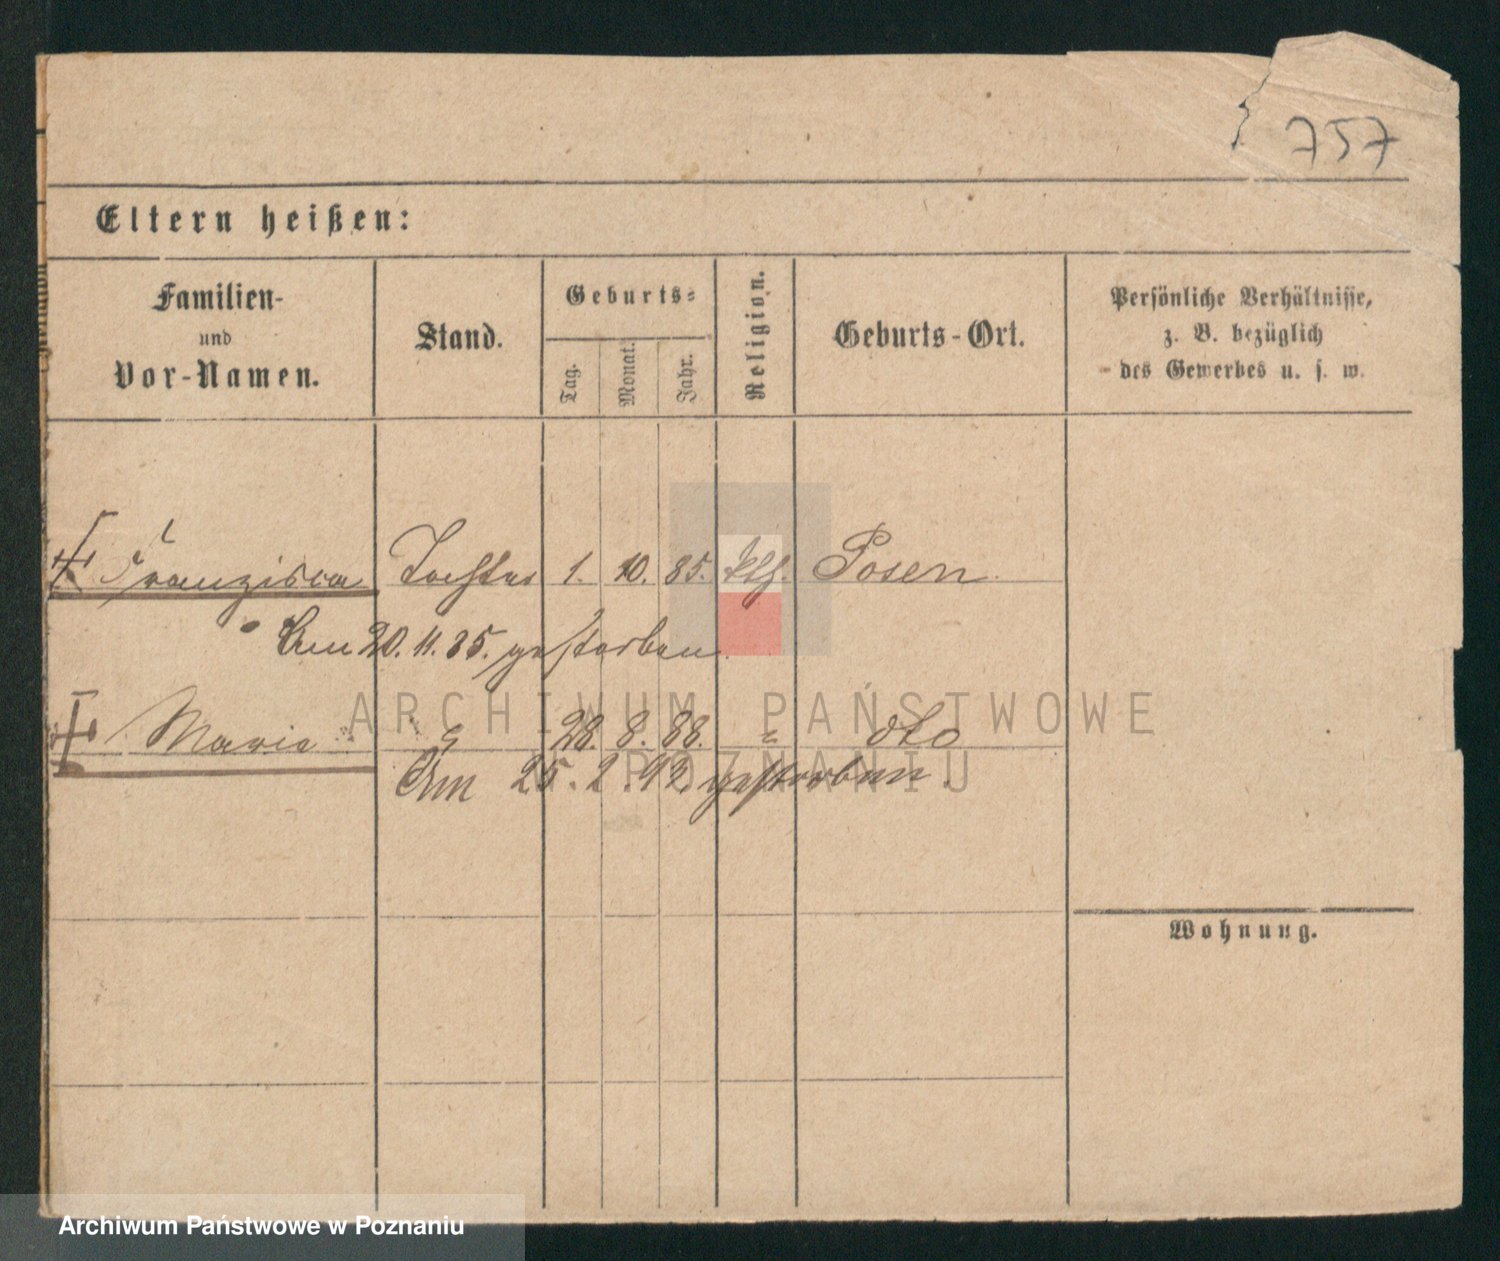 757
Eltern heißen:
Familien-
und
Vor-Namen.
Stand.
Geburts-
Tag.
Monat.
Jahr.
Religion.
Geburts-Ort.
Persönliche Verhältnisse,
z. B. bezüglich
des Gewerbes u. s. w.
Franzisca Tochter 1. 10. 85. kth. Posen
Am 20. 11. 85. gestorben
Maria " 28. 8. 88. " dto
Am 25. 2. 92. gestorben.
Wohnung.
ARCHIWUM PAŃSTWOWE
W POZNANIU
Archiwum Państwowe w Poznaniu